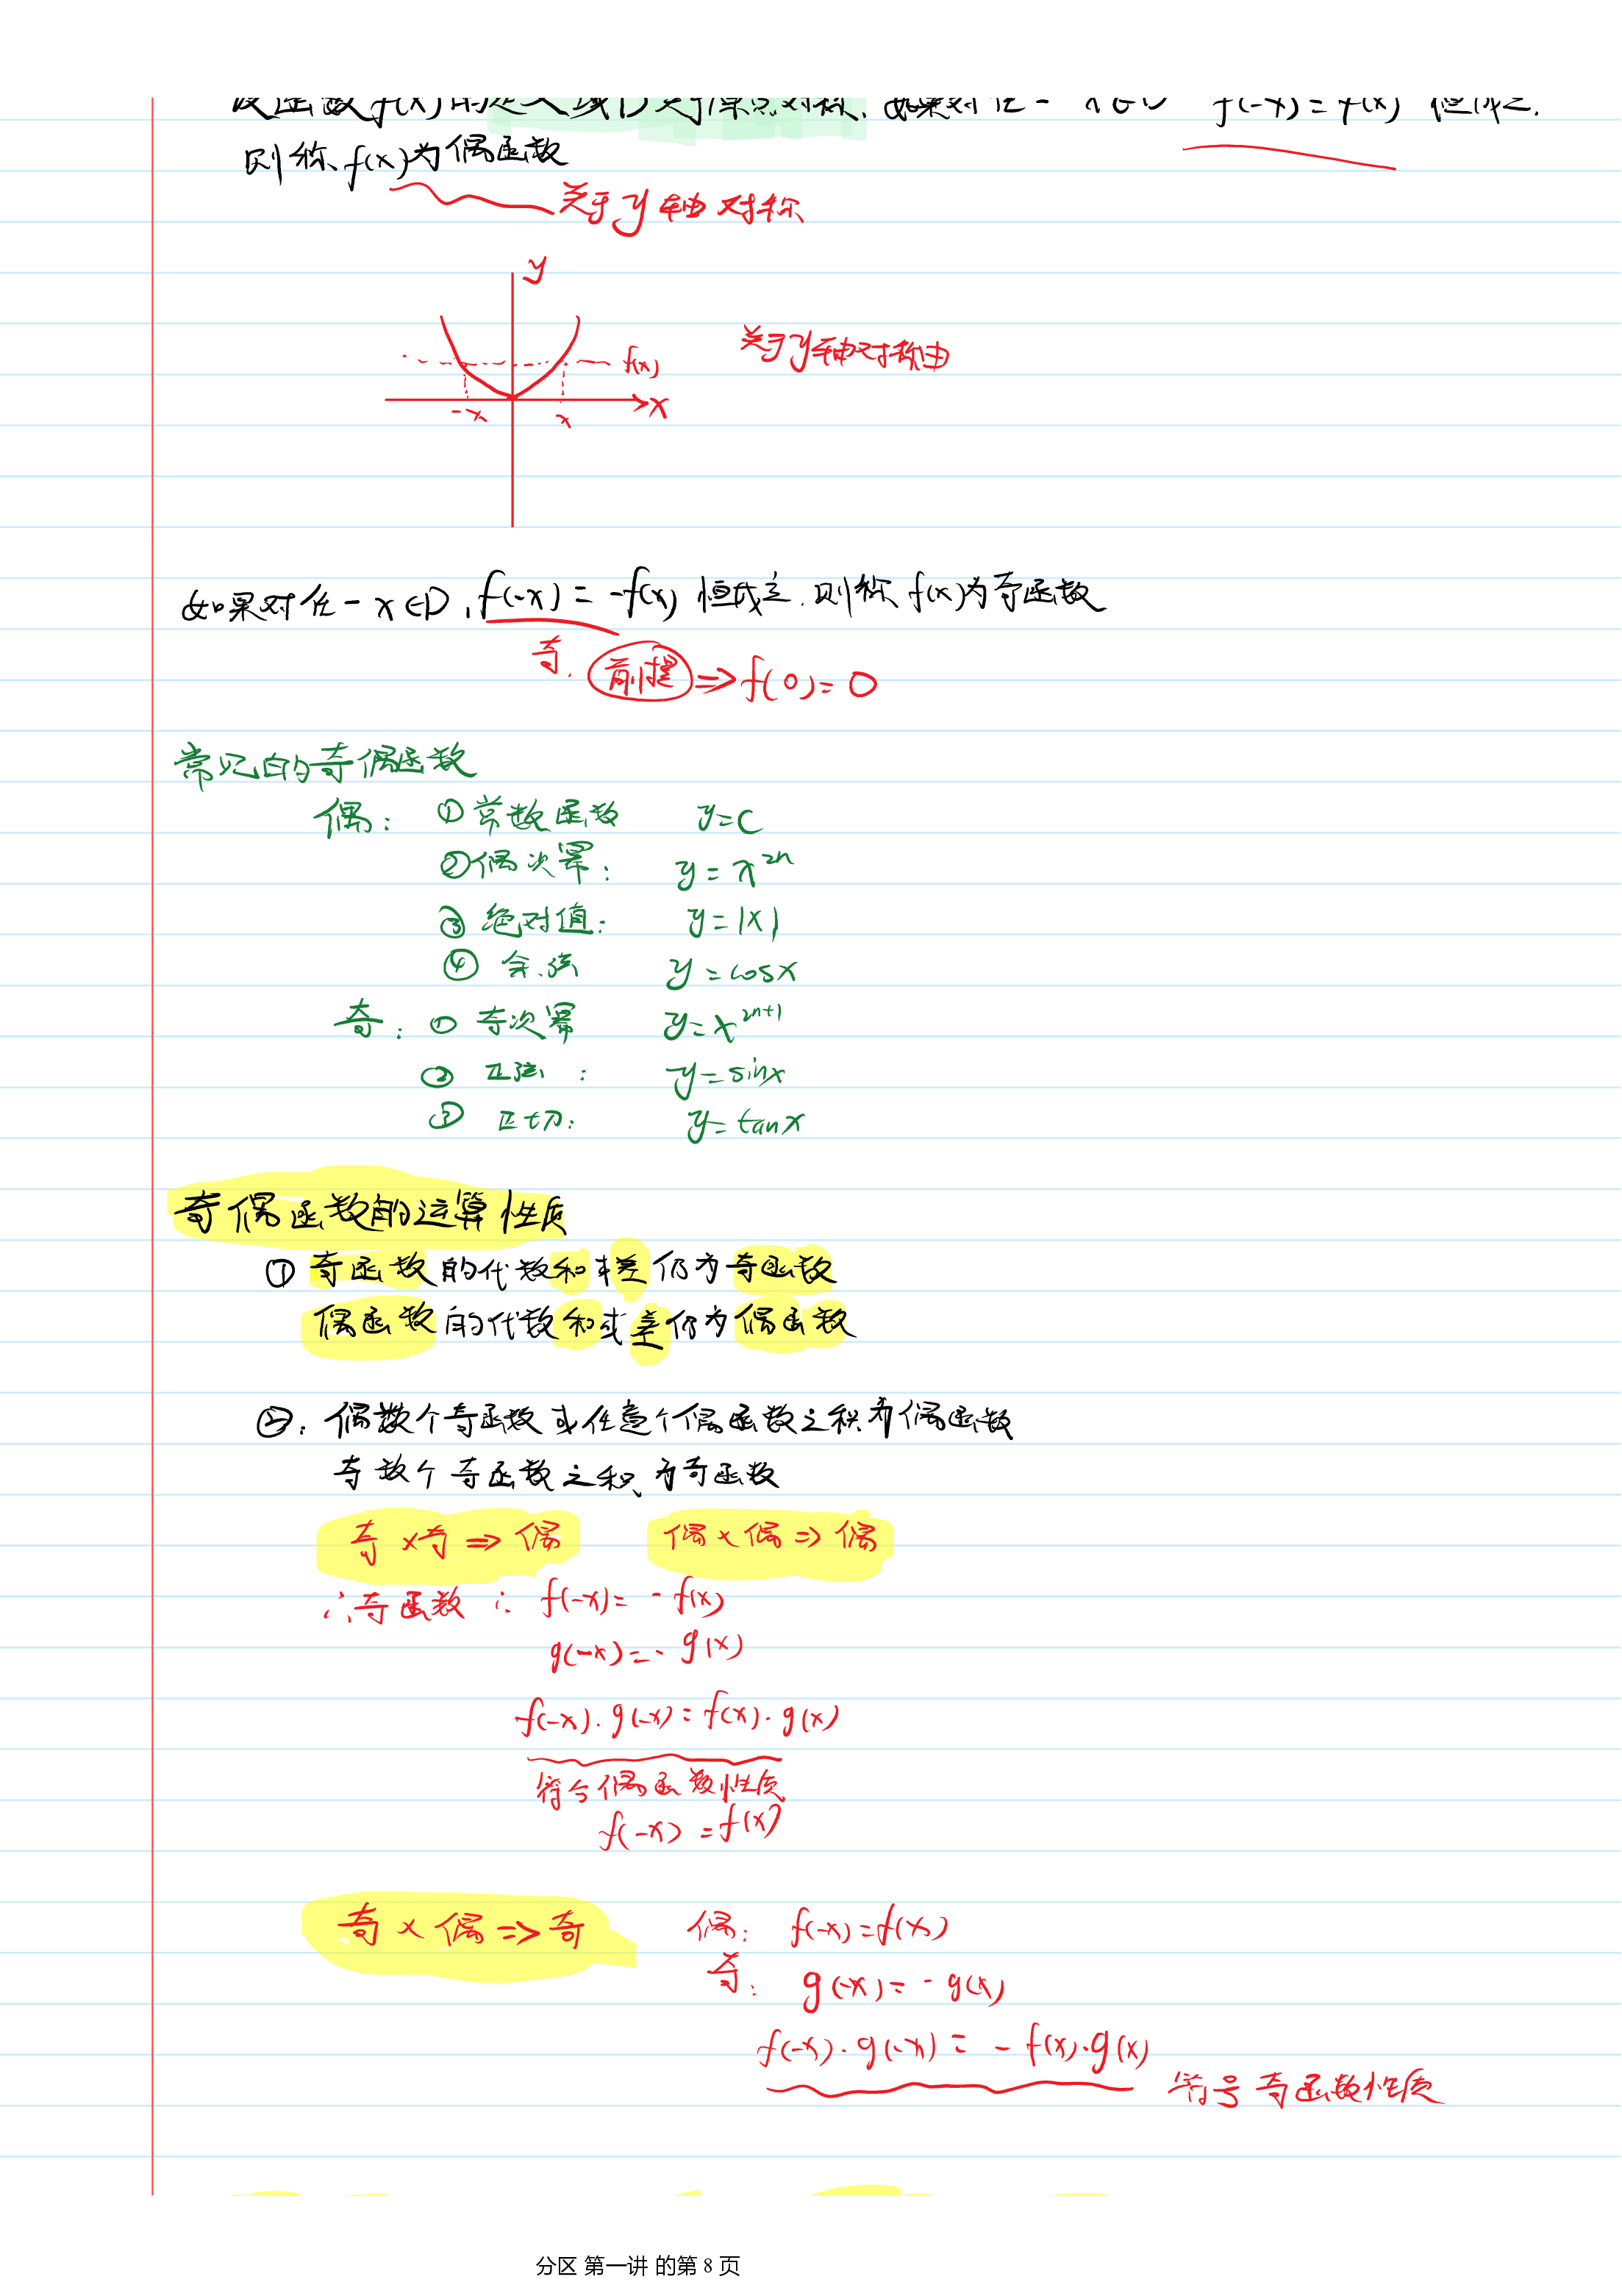 设函数f(x)的定义域D关于原点对称, 如果对任一 x∈D f(-x)=f(x) 恒成立.
则称f(x)为偶函数
关于y轴对称
y
关于y轴对称
f(x)
-x x x
如果对任一x∈D, f(-x)=-f(x) 恒成立. 则称f(x)为奇函数
奇. 前提 ⇒ f(0)=0
常见的奇偶函数
偶: ① 常数函数 y=C
②偶次幂: y=x^{2n}
③ 绝对值: y=|x|
④ 余弦 y=cosx
奇: ① 奇次幂 y=x^{2n+1}
② 正弦: y=sinx
③ 正切: y=tanx
奇偶函数的运算性质
① 奇函数的代数和或差仍为奇函数
偶函数的代数和或差仍为偶函数
②: 偶数个奇函数或任意个偶函数之积为偶函数
奇数个奇函数之积为奇函数
奇×奇⇒偶 偶×偶⇒偶
∴奇函数 ∴ f(-x)=-f(x)
g(-x)=-g(x)
f(-x)·g(-x)=f(x)·g(x)
符合偶函数性质
f(-x)=f(x)
奇×偶⇒奇 偶: f(-x)=f(x)
奇: g(-x)=-g(x)
f(-x)·g(-x)=-f(x)·g(x)
符号奇函数性质
分区 第一讲 的第 8 页